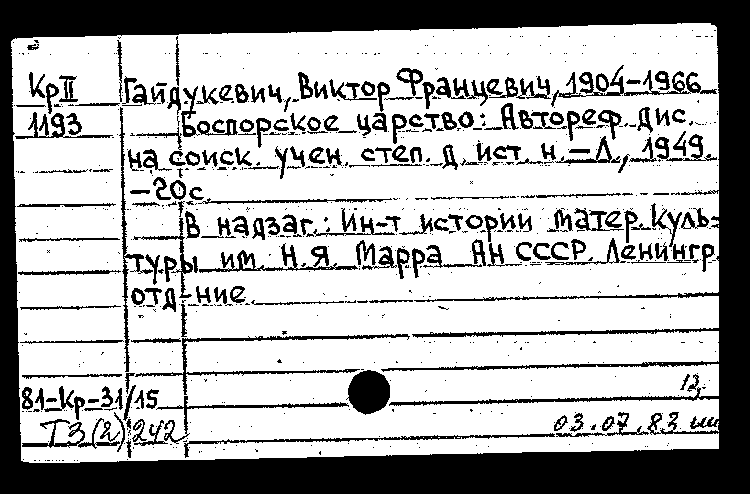 КрII Гайдукевич, Виктор Францевич, 1904-1966
1193 Боспорское царство: Автореф. дис.
на соиск. учен. степ. д. ист. н. – Л., 1949.
– 20с.
В надзаг.: Ин-т истории матер. куль-
туры им. Н.Я. Марра АН СССР. Ленингр.
отд-ние.
12
81-Кр-31/15
Т3(2)242 03.07.83